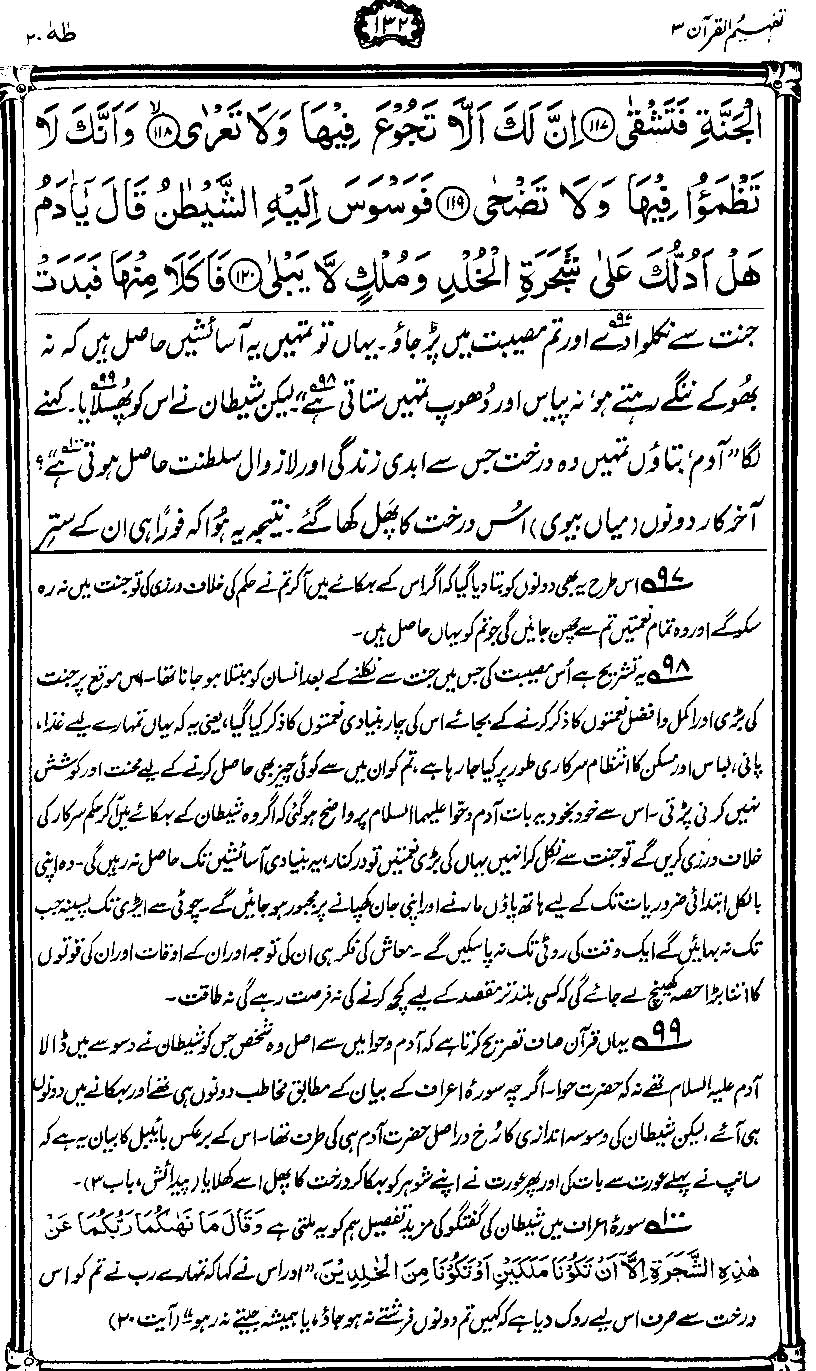 تفہیم القرآن ۳
۱۳۲
طٰہٰ ۲۰
الْجَنَّةِ فَتَشْقٰى ﴿۱۱۷﴾ اِنَّ لَكَ اَلَّا تَجُوْعَ فِيْهَا وَلَا تَعْرٰى ﴿۱۱۸﴾ وَاَنَّكَ لَا
تَظْمَؤُا فِيْهَا وَلَا تَضْحٰى ﴿۱۱۹﴾ فَوَسْوَسَ اِلَيْهِ الشَّيْطٰنُ قَالَ يٰۤاٰدَمُ
هَلْ اَدُلُّكَ عَلٰى شَجَرَةِ الْخُلْدِ وَمُلْكٍ لَّا يَبْلٰى ﴿۱۲۰﴾ فَاَكَلَا مِنْهَا فَبَدَتْ
جنت سے نکلوا دے۹۷ اور تم مصیبت میں پڑ جاؤ۔ یہاں تو تمہیں یہ آسائشیں حاصل ہیں کہ نہ
بھوکے ننگے رہتے ہو، نہ پیاس اور دُھوپ تمہیں ستاتی ہے۹۸“۔ لیکن شیطان نے اس کو پھُسلایا۹۹۔ کہنے
لگا ”آدم، بتاؤں تمہیں وہ درخت جس سے ابدی زندگی اور لازوال سلطنت حاصل ہوتی ہے۱۰۰“؟
آخر کار دونوں (میاں بیوی) اُس درخت کا پھل کھا گئے۔ نتیجہ یہ ہُوا کہ فوراً ہی ان کے ستر
۹۷ اس طرح یہ بھی دونوں کو بتا دیا گیا کہ اگر اس کے بہکائے میں آکر تم نے حکم کی خلاف ورزی کی تو جنت میں نہ رہ
سکو گے اور وہ تمام نعمتیں تم سے چھن جائیں گی جو تم کو یہاں حاصل ہیں۔
۹۸ یہ تشریح ہے اُس مصیبت کی جس میں جنت سے نکلنے کے بعد انسان کو مبتلا ہو جانا تھا۔ اس موقع پر جنت
کی بڑی اور اکمل و افضل نعمتوں کا ذکر کرنے کے بجائے اس کی چار بنیادی نعمتوں کا ذکر کیا گیا، یعنی یہ کہ یہاں تمہارے لیے غذا،
پانی، لباس اور مسکن کا انتظام سرکاری طور پر کیا جا رہا ہے، تم کو ان میں سے کوئی چیز بھی حاصل کرنے کے لیے محنت اور کوشش
نہیں کرنی پڑتی۔ اس سے خود بخود یہ بات آدم و حوّا علیہما السلام پر واضح ہو گئی کہ اگر وہ شیطان کے بہکائے میں آکر حکم سرکار کی
خلاف ورزی کریں گے تو جنت سے نکل کر انہیں یہاں کی بڑی نعمتیں تو درکنار، یہ بنیادی آسائشیں تک حاصل نہ رہیں گی۔ وہ اپنی
بالکل ابتدائی ضروریات تک کے لیے ہاتھ پاؤں مارنے اور اپنی جان کھپانے پر مجبور ہو جائیں گے۔ چوٹی سے ایڑی تک پسینہ جب
تک نہ بہائیں گے ایک وقت کی روٹی تک نہ پا سکیں گے۔ معاش کی فکر ہی ان کی توجہ اور ان کے اوقات اور ان کی قوتوں
کا اتنا بڑا حصہ کھینچ لے جائے گی کہ کسی بلند تر مقصد کے لیے کچھ کرنے کی نہ فرصت رہے گی نہ طاقت۔
۹۹ یہاں قرآن صاف تصریح کرتا ہے کہ آدم و حوا میں سے اصل وہ شخص جس کو شیطان نے وسوسے میں ڈالا
آدم علیہ السلام تھے نہ کہ حضرت حوا۔ اگرچہ سورۂ اعراف کے بیان کے مطابق مخاطب دونوں ہی تھے اور بہکانے میں دونوں
ہی آئے، لیکن شیطان کی وسوسہ اندازی کا رُخ دراصل حضرت آدم ہی کی طرف تھا۔ اس کے برعکس بائیبل کا بیان یہ ہے کہ
سانپ نے پہلے عورت سے بات کی اور پھر عورت نے اپنے شوہر کو بہکا کر درخت کا پھل اسے کھلایا (پیدائش، باب ۳)۔
۱۰۰ سورۂ اعراف میں شیطان کی گفتگو کی مزید تفصیل ہم کو یہ ملتی ہے وَقَالَ مَا نَهٰىكُمَا رَبُّكُمَا عَنْ
هٰذِهِ الشَّجَرَةِ اِلَّاۤ اَنْ تَكُوْنَا مَلَكَيْنِ اَوْ تَكُوْنَا مِنَ الْخٰلِدِيْنَ، ”اور اس نے کہا کہ تمہارے رب نے تم کو اس
درخت سے صرف اس لیے روک دیا ہے کہ کہیں تم دونوں فرشتے نہ ہو جاؤ، یا ہمیشہ جیتے نہ رہو“ (آیت ۲۰)